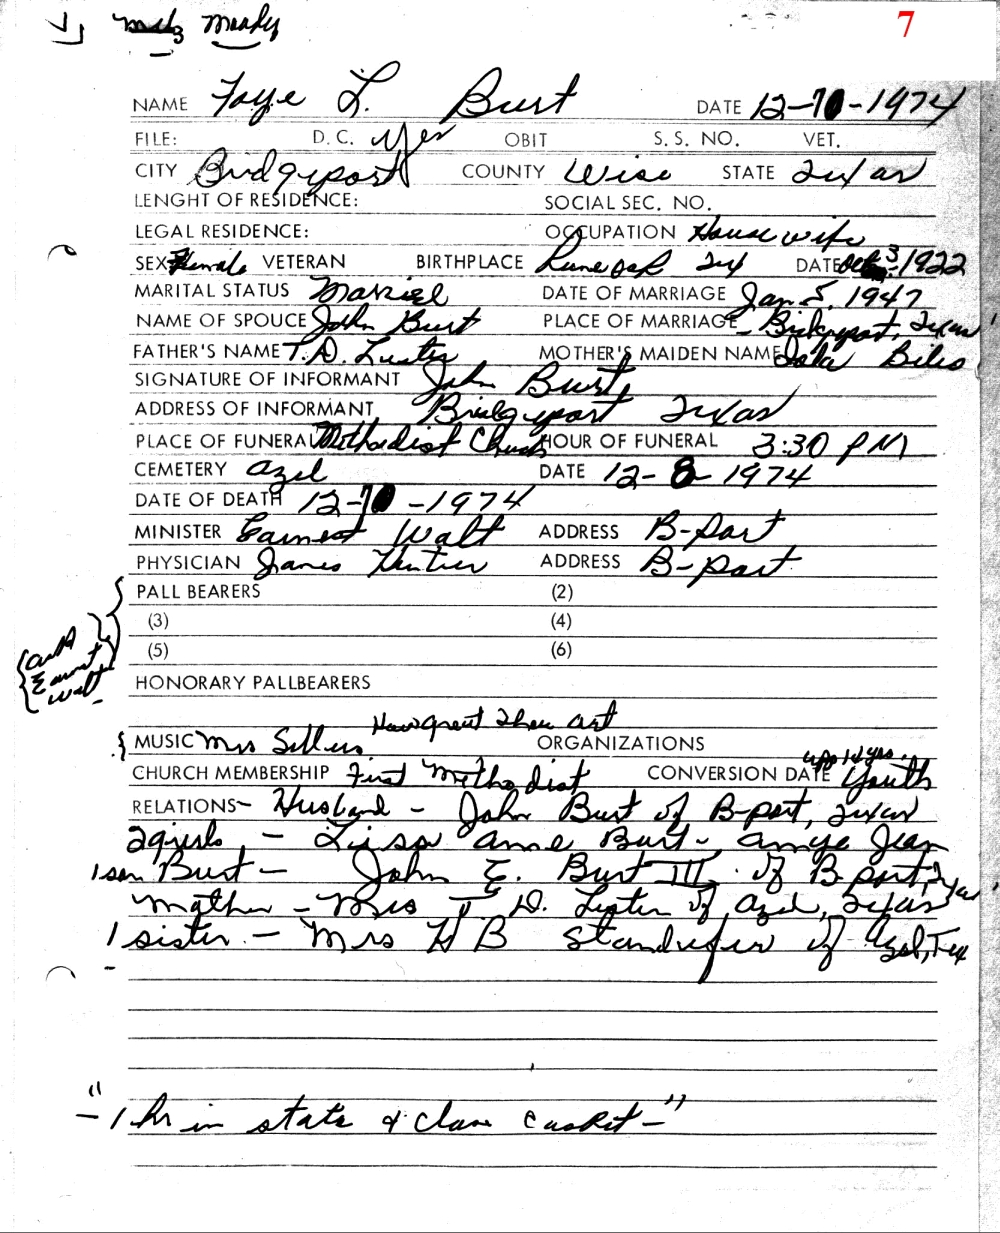 7
Moody
NAME Faye L. Burt DATE 12-10-1974
FILE: D. C. Yes OBIT S. S. NO. VET.
CITY Bridgeport COUNTY Wise STATE Texas
LENGHT OF RESIDENCE: SOCIAL SEC. NO.
LEGAL RESIDENCE: OCCUPATION House wife
SEX Female VETERAN BIRTHPLACE Tex DATE 3 1922
MARITAL STATUS Married DATE OF MARRIAGE Jan 5, 1947
NAME OF SPOUCE John Burt PLACE OF MARRIAGE - Bridgeport, Texas
FATHER'S NAME T. D. Luster MOTHER'S MAIDEN NAME
SIGNATURE OF INFORMANT John Burt
ADDRESS OF INFORMANT Bridgeport Texas
PLACE OF FUNERAL Methodist Church HOUR OF FUNERAL 3:30 PM
CEMETERY Azel DATE 12-8-1974
DATE OF DEATH 12-10-1974
MINISTER Earnest Walt ADDRESS B-port
PHYSICIAN James ADDRESS B-port
PALL BEARERS (2)
(3) (4)
(5) (6)
Ask
Earnest
Walt
HONORARY PALLBEARERS
How great Thou art
MUSIC Mrs Sellers ORGANIZATIONS
CHURCH MEMBERSHIP First Methodist CONVERSION DATE Youth
RELATIONS- Husband - John Burt of B-port, Texas
2 girls - Lissa Anne Burt - Ange Jean
1 son Burt - John E. Burt III of B port, Texas
mother - Mrs T. D. Luster of Azel, Texas
1 sister - Mrs H B Standrefer of Azel, Tex
"
- 1 hr in state & close casket - "